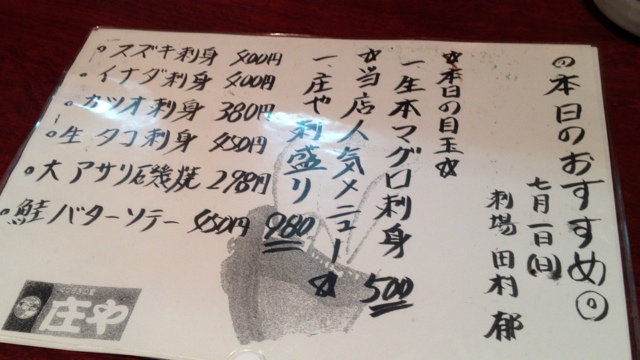 ◎本日のおすすめ◎
七月一日(日)
刺場 田村 郁
☆本日の目玉☆
一生本マグロ刺身 500
☆当店人気メニュー☆
一、庄や刺盛り 980
・スズキ刺身 400円
・イナダ刺身 400円
・カツオ刺身 380円
・生タコ刺身 450円
・大アサリ磯焼 298円
・鮭バターソテー 450円
庄や